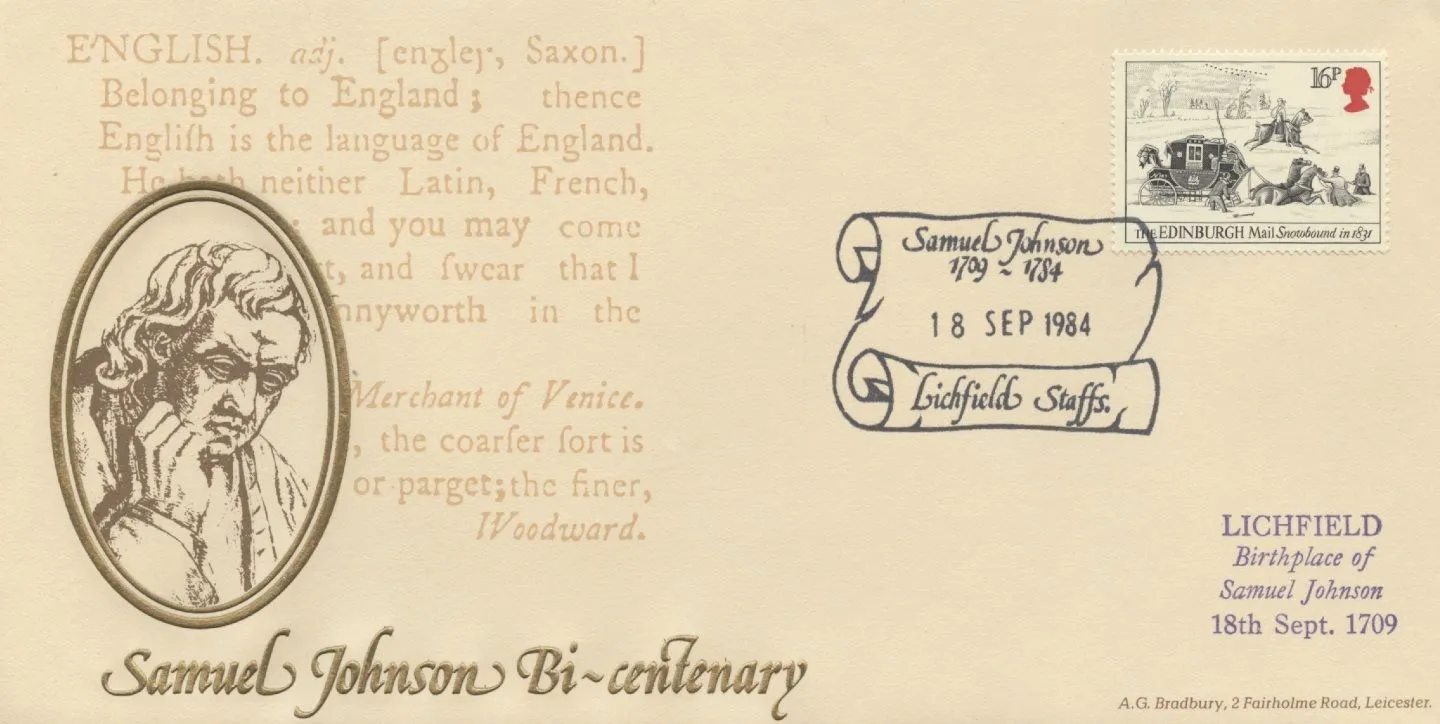 E'NGLISH. adj. [engleſ, Saxon.]
Belonging to England; thence
Engliſh is the language of England.
He hath neither Latin, French,
; and you may come
t, and ſwear that I
nnyworth in the
Merchant of Venice.
, the coarſer ſort is
or parget; the finer,
Woodward.
Samuel Johnson Bi~centenary
16P
THE EDINBURGH Mail Snowbound in 1831
Samuel Johnson
1709 ~ 1784
18 SEP 1984
Lichfield Staffs.
LICHFIELD
Birthplace of
Samuel Johnson
18th Sept. 1709
A.G. Bradbury, 2 Fairholme Road, Leicester.